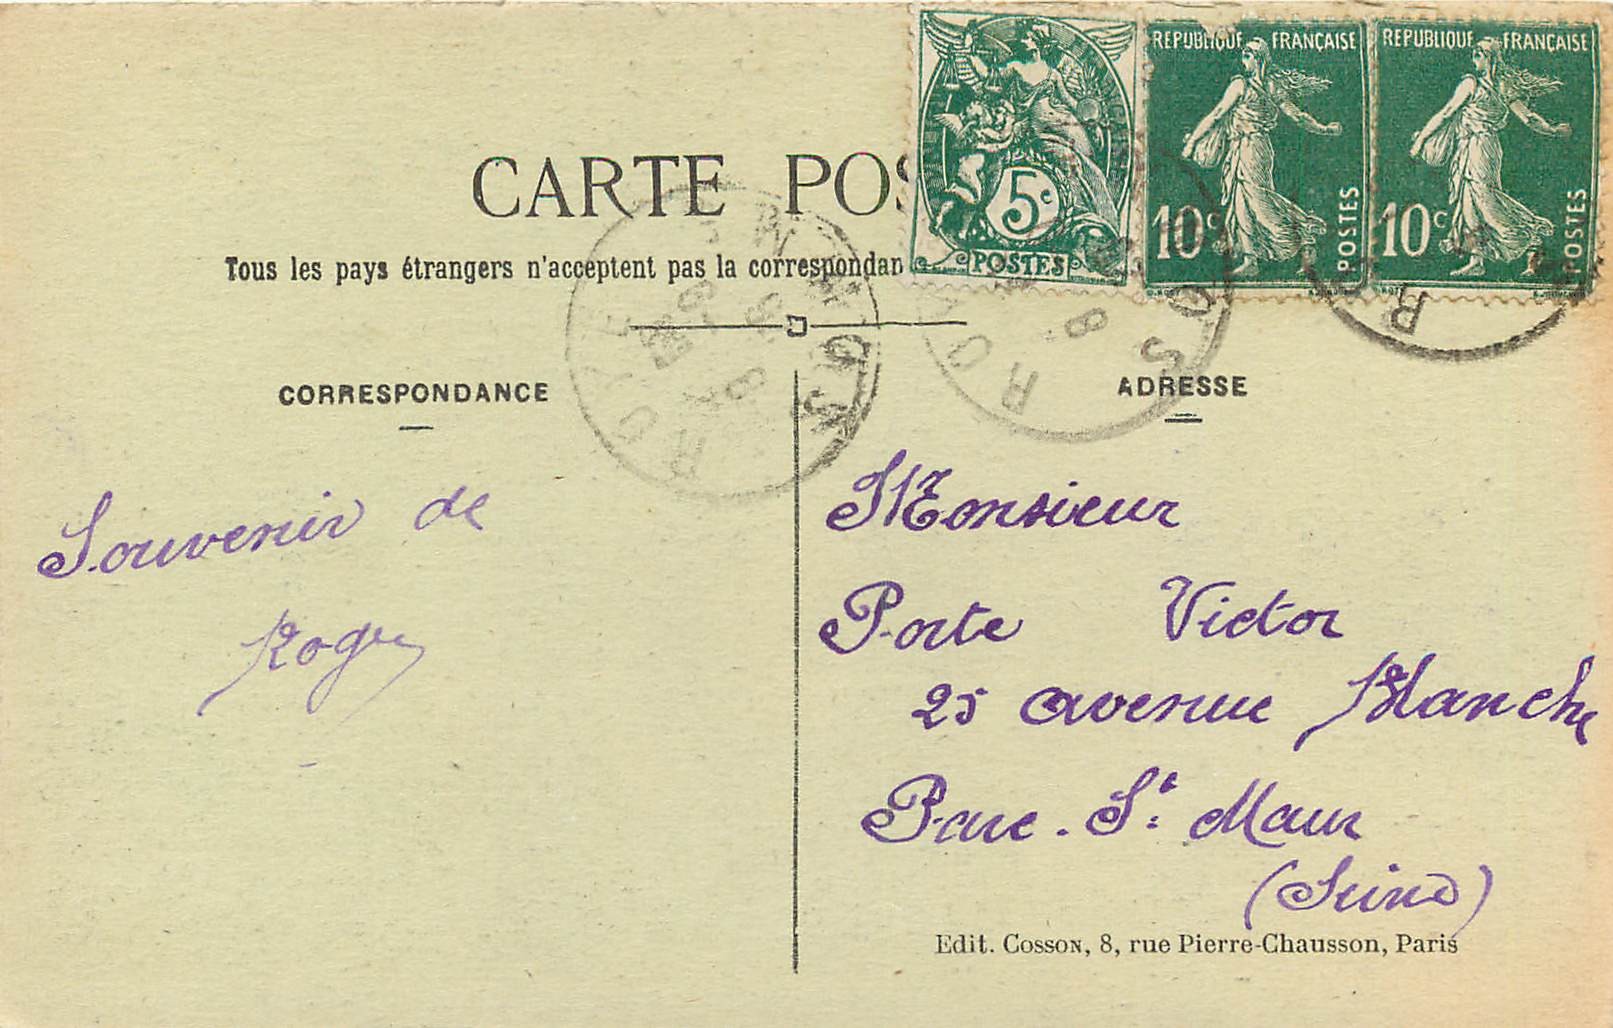 CARTE POS
Tous les pays étrangers n'acceptent pas la correspondan
CORRESPONDANCE
ADRESSE
5c
POSTES
REPUBLIQUE FRANÇAISE
10c
POSTES
REPUBLIQUE FRANÇAISE
10c
POSTES
Souvenir de
Roger
Monsieur
Porte Victor
25 avenue Blanche
Parc. St. Maur
(Seine)
Edit. Cosson, 8, rue Pierre-Chausson, Paris